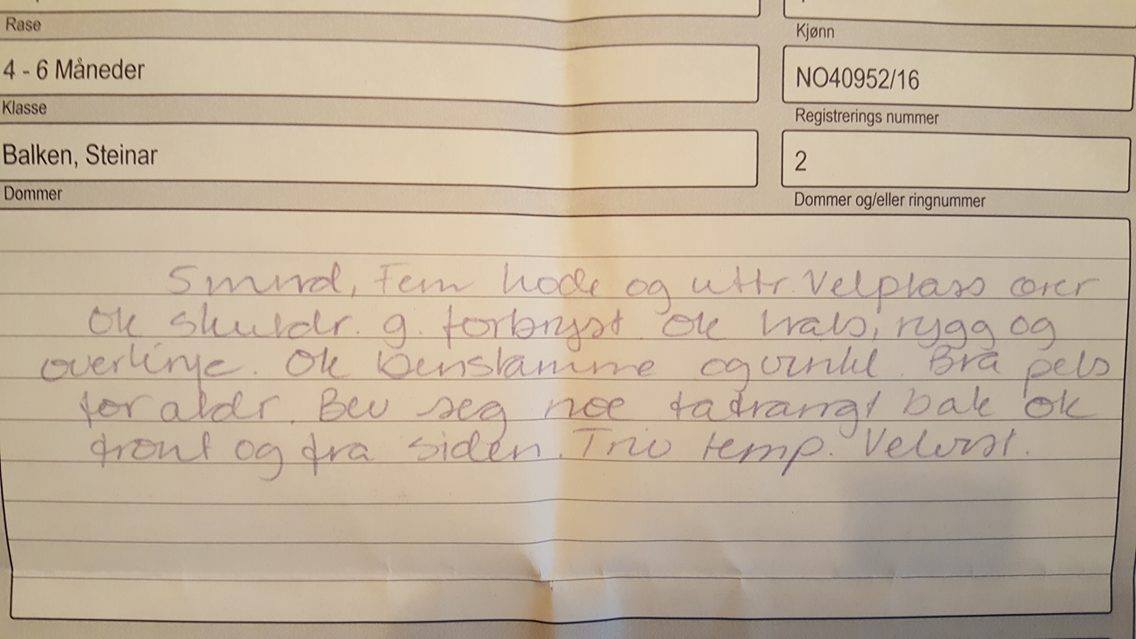 Rase
Kjønn
4 - 6 Måneder
NO40952/16
Klasse
Registrerings nummer
Balken, Steinar
2
Dommer
Dommer og/eller ringnummer
Fem hode og uttr. Velplass ører
ok skuldr. g. forbryst ok hals, rygg og
overlinje. Ok benstamme og vinkl. Bra pels
for aldr. Bev seg noe bak ok
front og fra siden. temp. Velvist.